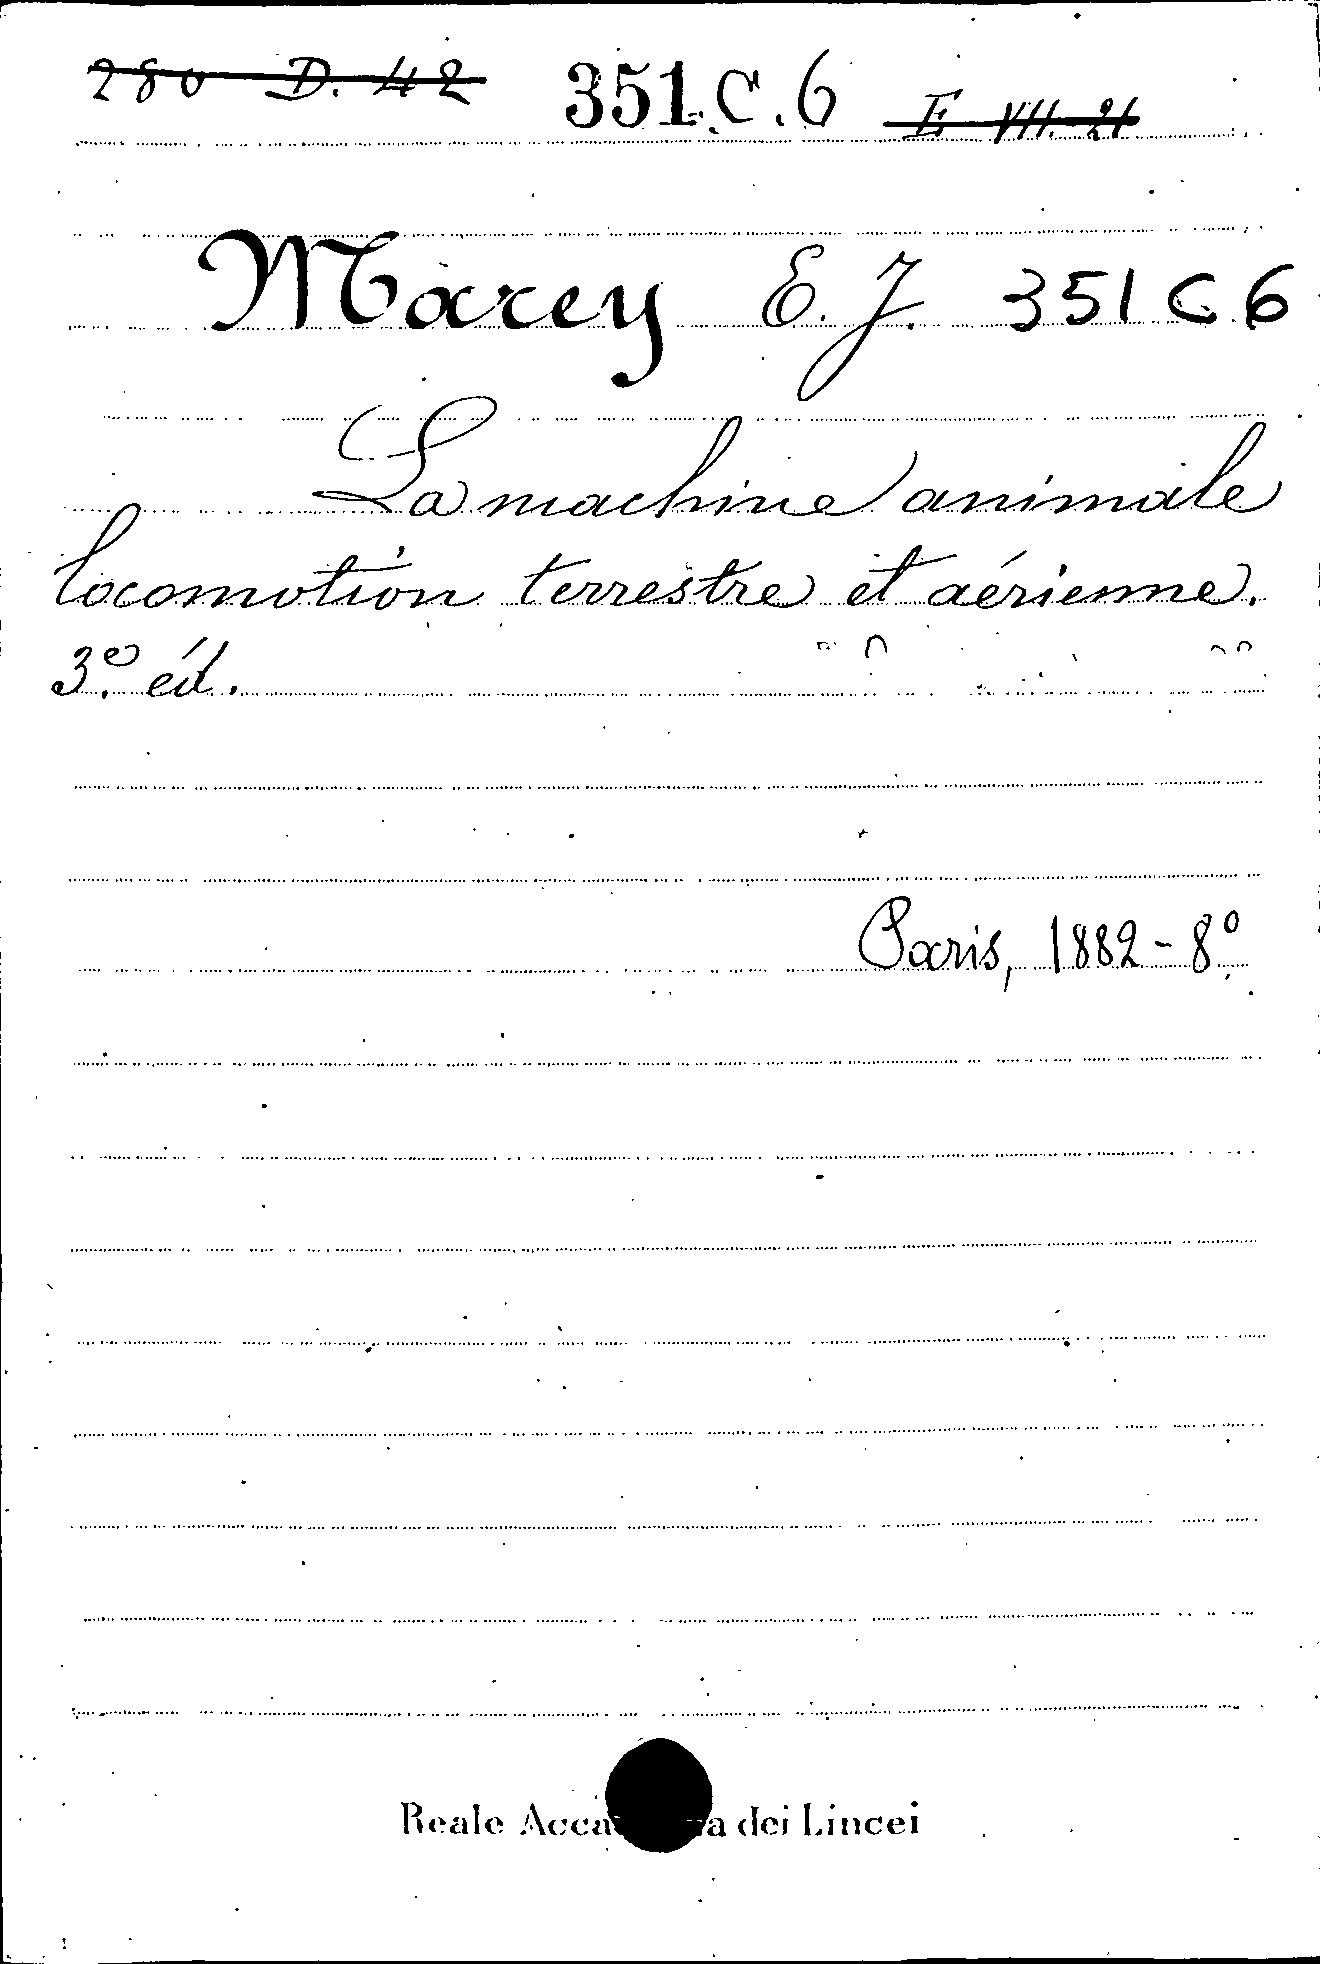 280 D. 42 351.C.6 E VII. 21
Marey E. J. 351 C 6
La machine animale
locomotion terrestre et aérienne.
3e. éd.
Paris, 1882 - 8º.
Reale Acca a dei Lincei